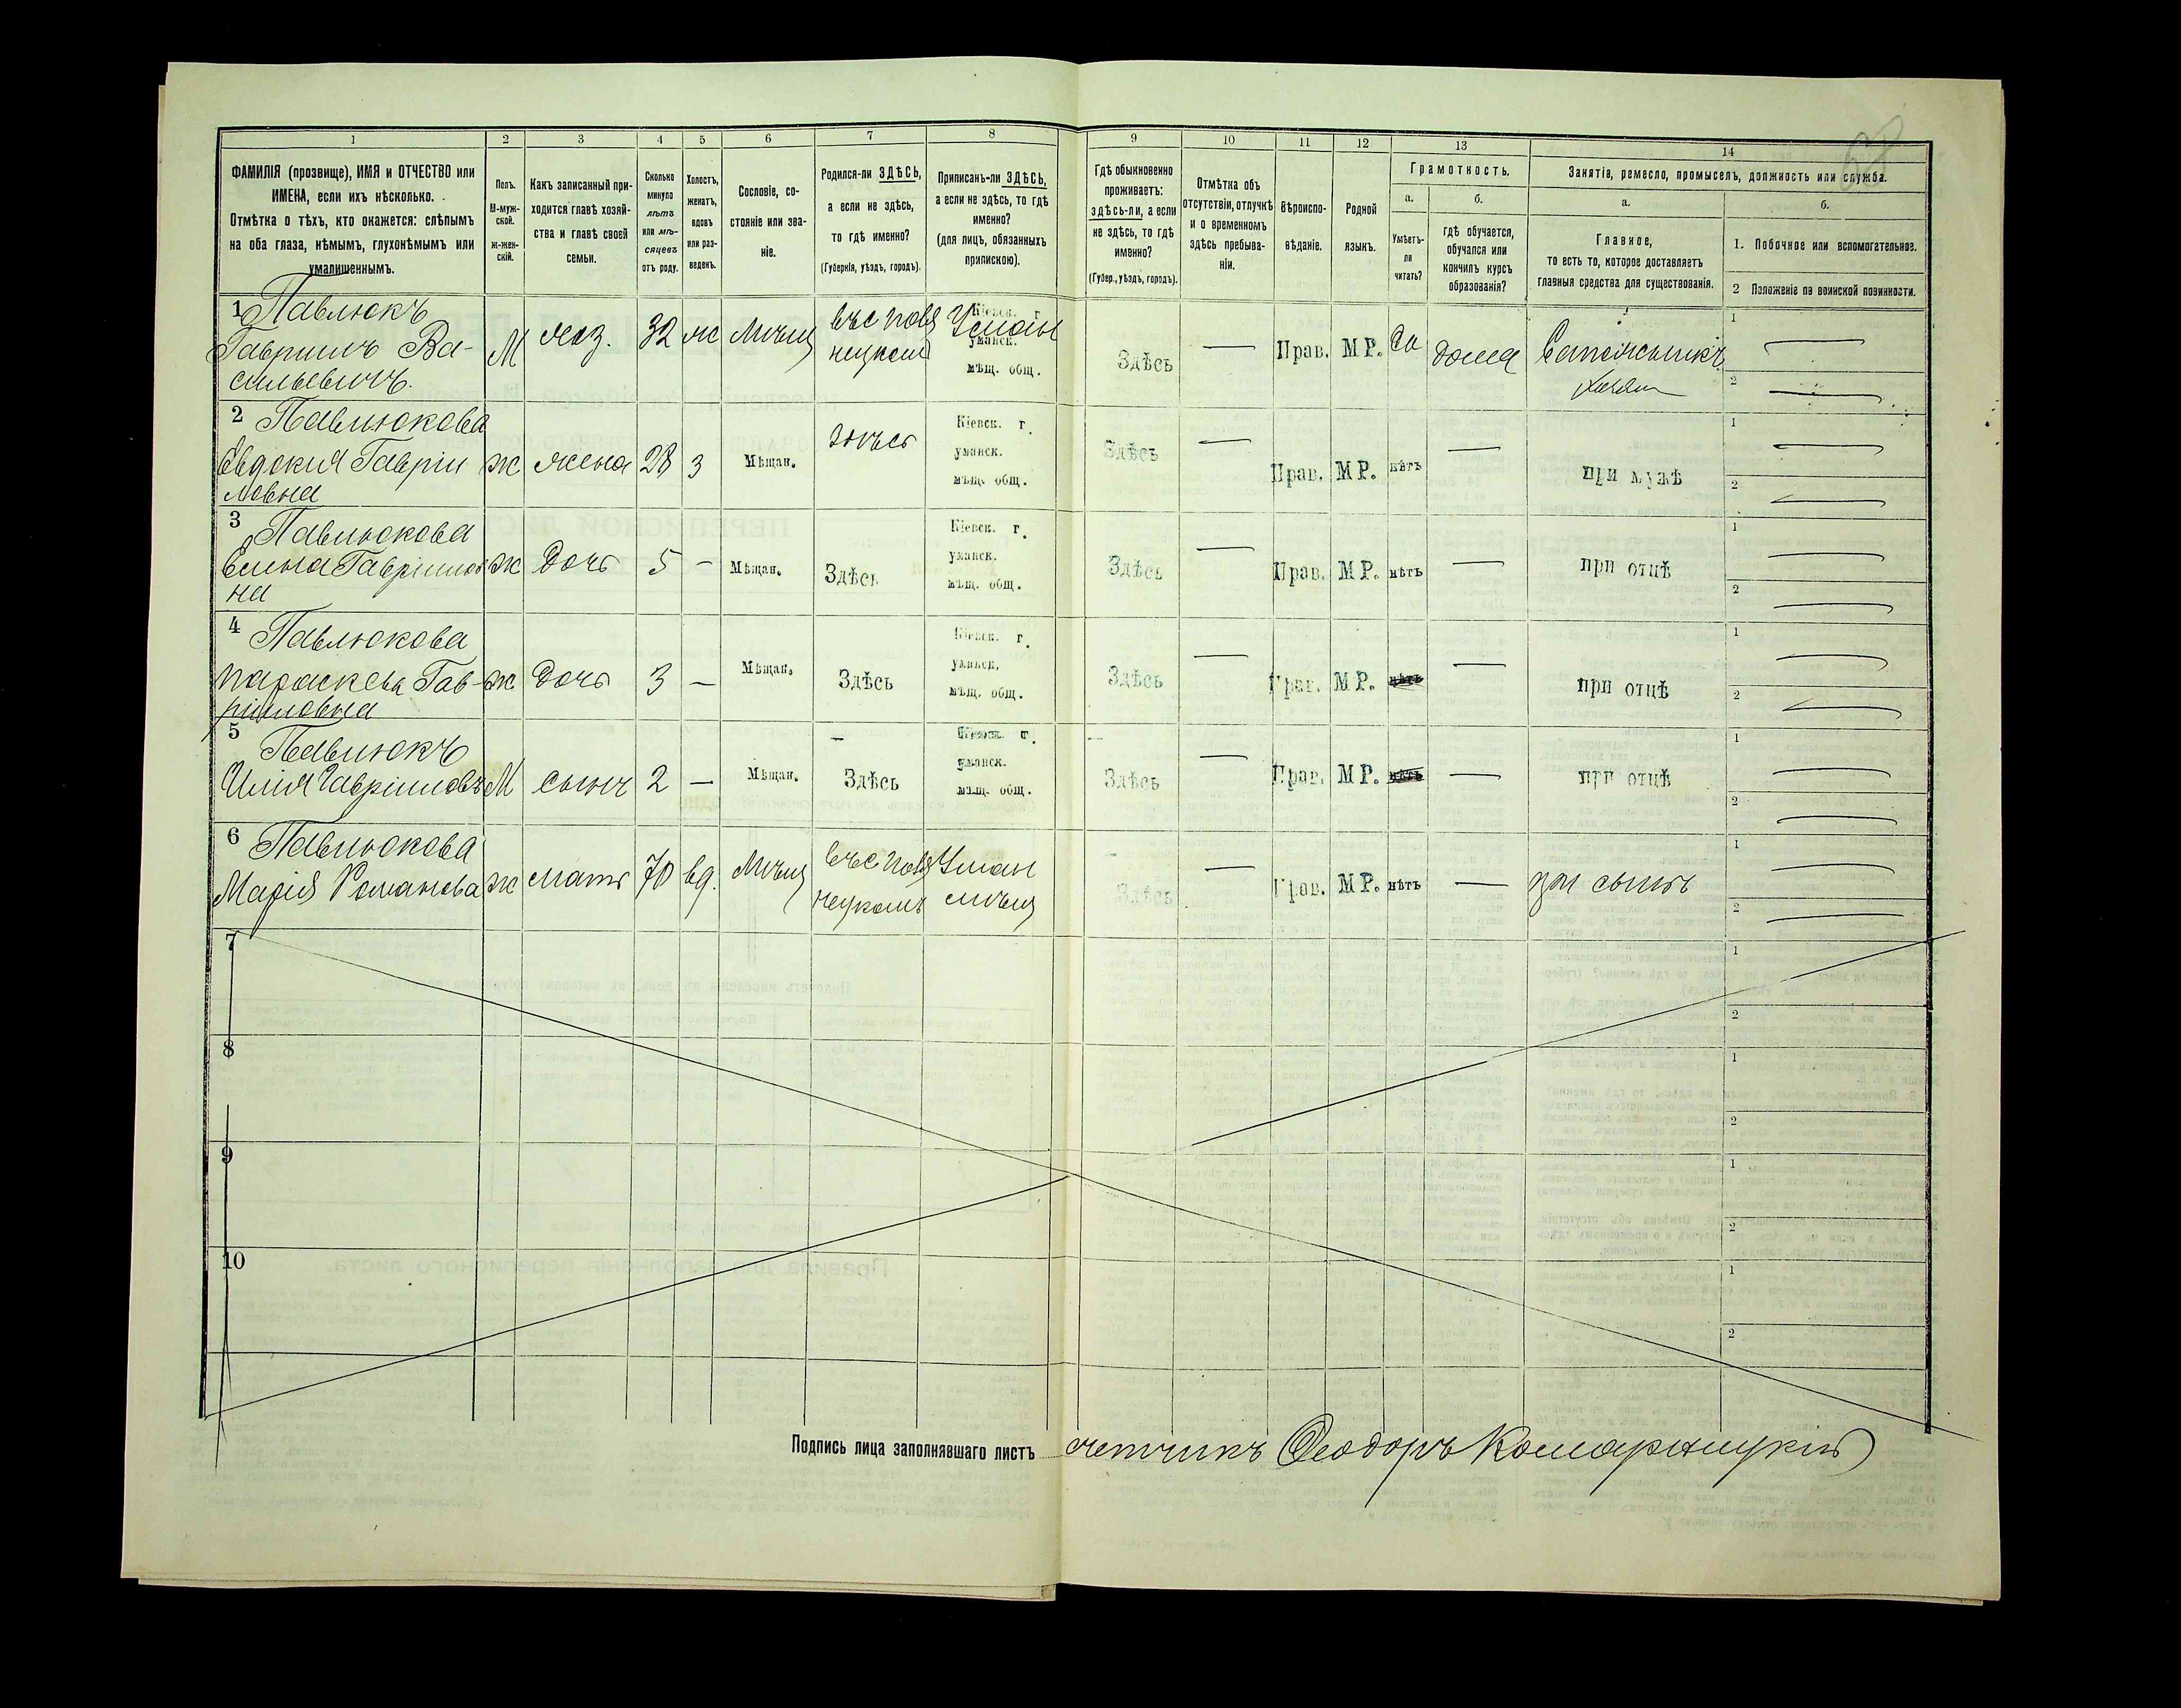 68
1 2 3 4 5 6 7 8 9 10 11 12 13 14
ФАМИЛІЯ (прозвище), ИМЯ и ОТЧЕСТВО или
ИМЕНА, если ихъ нѣсколько.
Отмѣтка о тѣхъ, кто окажется: слѣпымъ
на оба глаза, нѣмымъ, глухонѣмымъ или
умалишеннымъ.
Полъ.
М-муж-
ской.
ж-жен-
скій.
Какъ записанный при-
ходится главѣ хозяй-
ства и главѣ своей
семьи.
Сколько
минуло
лѣтъ
или мѣ-
сяцевъ
отъ роду.
Холостъ,
женатъ,
вдовъ
или раз-
веденъ.
Сословіе, со-
стояніе или зва-
ніе.
Родился-ли ЗДѢСЬ,
а если не здѣсь,
то гдѣ именно?
(Губернія, уѣздъ, городъ).
Приписанъ-ли ЗДѢСЬ,
а если не здѣсь, то гдѣ
именно?
(для лицъ, обязанныхъ
припискою).
Гдѣ обыкновенно
проживаетъ:
здѣсь-ли, а если
не здѣсь, то гдѣ
именно?
(Губер., уѣздъ, городъ).
Отмѣтка объ
отсутствіи, отлучкѣ
и о временномъ
здѣсь пребыва-
ніи.
Вѣроиспо-
вѣданіе.
Родной
языкъ.
Грамотность.
а.
Умѣетъ-
ли
читать?
б.
гдѣ обучается,
обучался или
кончилъ курсъ
образованія?
Занятіе, ремесло, промыселъ, должность или служба.
а.
Главное,
то есть то, которое доставляетъ
главныя средства для существованія.
б.
1. Побочное или вспомогательное.
2 Положеніе по воинской повинности.
1 Павлюкъ
Гавриилъ Ва-
сильевичъ.
М хоз. 32 ж Мѣщ
Кіевск. г.
уманск.
мѣщ. общ.
Уман
Здѣсь — Прав. МР. да дома Сапожникъ
хозяин
1 —
2 —
2 Павлюкова
Евдокия Гавріи
ловна
ж жена 28 з Мѣщан. здѣсь
Кіевск. г.
уманск.
мѣщ. общ.
Здѣсь — Прав. МР. нѣтъ — при мужѣ
1 —
2 —
3 Павлюкова
Елена Гавріилов
на
ж дочь 5 — Мѣщан. Здѣсь
Кіевск. г.
уманск.
мѣщ. общ.
Здѣсь — Прав. МР. нѣтъ — при отцѣ
1 —
2 —
4 Павлюкова
Параскева Гав-
риловна
ж дочь 3 — Мѣщан. Здѣсь
Кіевск. г.
уманск.
мѣщ. общ.
Здѣсь — Прав. МР. нѣтъ — при отцѣ
1 —
2 —
5 Павлюкъ
Илія Гавріиловъ
М сынъ 2 — Мѣщан. Здѣсь
Кіевск. г.
уманск.
мѣщ. общ.
Здѣсь — Прав. МР. нѣтъ — при отцѣ
1 —
2 —
6 Павлюкова
Марія Романова
ж мать 70 вд. Мѣщ
Уман
мѣщ
Здѣсь — Прав. МР. нѣтъ — при сынѣ
1 —
2 —
7
1
2
8
1
2
9
1
2
10
1
2
Подпись лица заполнявшаго листъ счетчикъ Ѳеодоръ Комарницкій